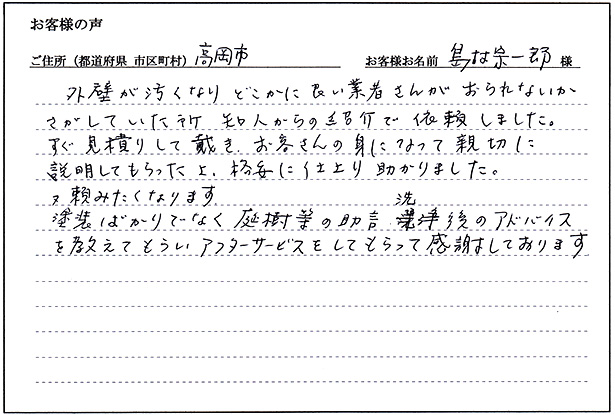 お客様の声
ご住所（都道府県 市区町村）高岡市 お客様お名前 島村宗一郎 様
外壁が汚くなり どこかに良い業者さんがおられないか
さがしていた所 知人からの紹介で依頼しました。
すぐ見積りして戴き、お客さんの身になって親切に
説明してもらった上、格安に仕上り助かりました。
又頼みたくなります
塗装ばかりでなく庭樹等の助言 洗浄後のアドバイス
を教えてもらいアフターサービスをしてもらって感謝しております